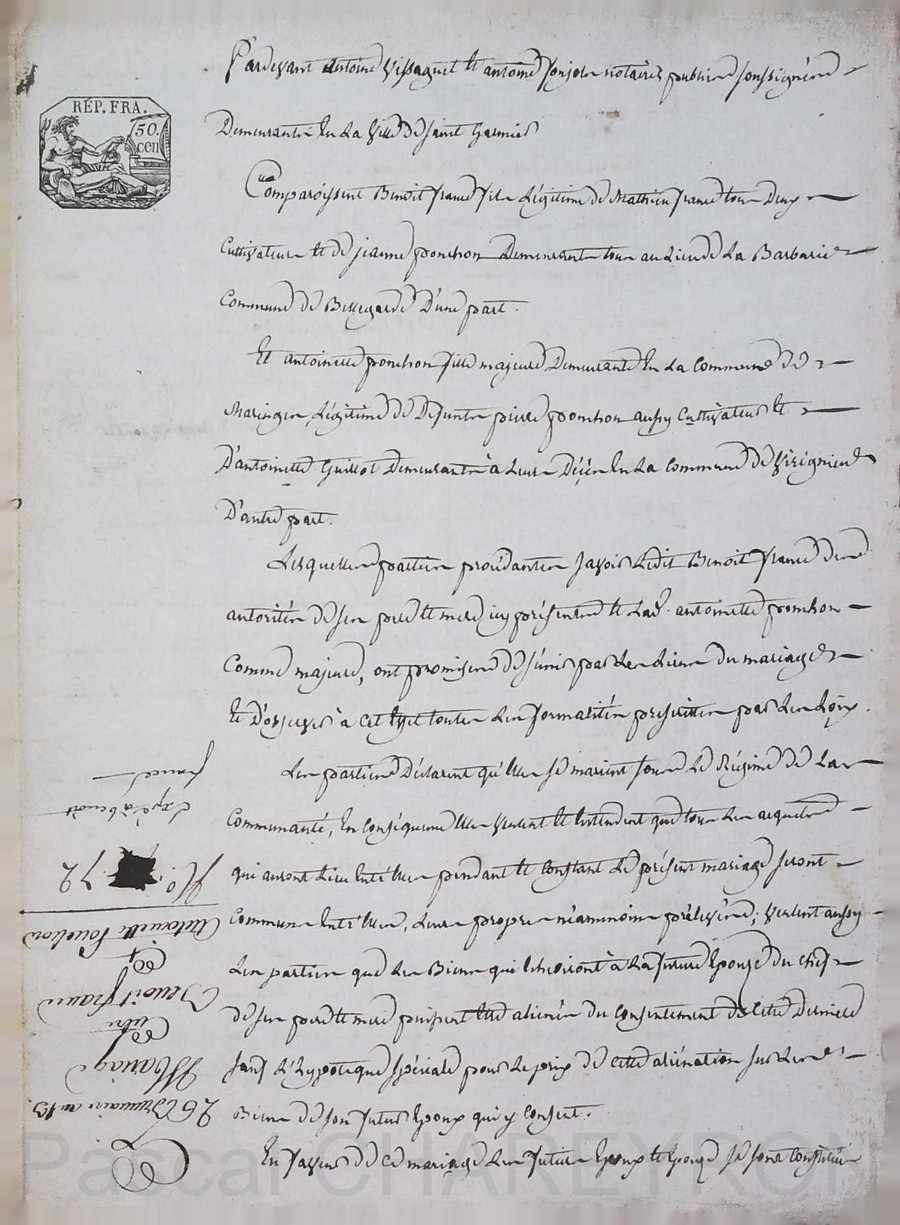 RÉP. FRA.
50.
cen
Pardevant Antoine Vissaguet et antoine notaires publics soussignés
Demeurants En La ville de saint Galmier
Comparoissent Benoit france fils Légitime de Mathieu france tous Deux
Cultivateurs et de jeanne ponchon Demeurants tous au Lieu de La Barbarie
Commune de Bellegarde D'une part.
Et antoinette ponchon fille majeure Demeurante En La Commune de
Maringes Légitime de Defunts pierre ponchon aussy Cultivateur et
D'antoinette Guillot Demeurants à Leurs Décès En La Commune de Virignieu
D'autre part.
Lesquelles parties procédantes savoir Ledit Benoit france des
autorités de ses pere et mere icy présents et Lad. antoinette ponchon
Comme majeure, ont promis de s'unir par Les Liens du mariage
et D'observer à cet effet toutes Les formalités prescrittes par Les Loix.
Les parties Déclarent qu'elles se marient sous Le Régime de La
Communauté, En Conséquence elles veulent et entendent que tous Les acquets
qui auront Lieu Entr'elles pendant et Constant Le présent mariage seront
Communs Entr'elles, Leurs propres néammoins prélevés; veulent aussy
Les parties que Les Biens qui échoiront à La future Epouse du chef
de ses pere et mere puissent etre aliénés du Consentement de Cette Derniere
sauf L'hypoteque spéciale pour Le prix de Cette aliénation sur Les
Biens de son futur Epoux qui y Consent.
En faveur de Ce mariage Les futurs Epoux et Epouse se sont Constitués
26 Brumaire an 13.
Mariage
Entre
Benoit france
Et
Antoinette Ponchon
N.° 72
Exp.é à benoit
france
Pascal CHAREYRON